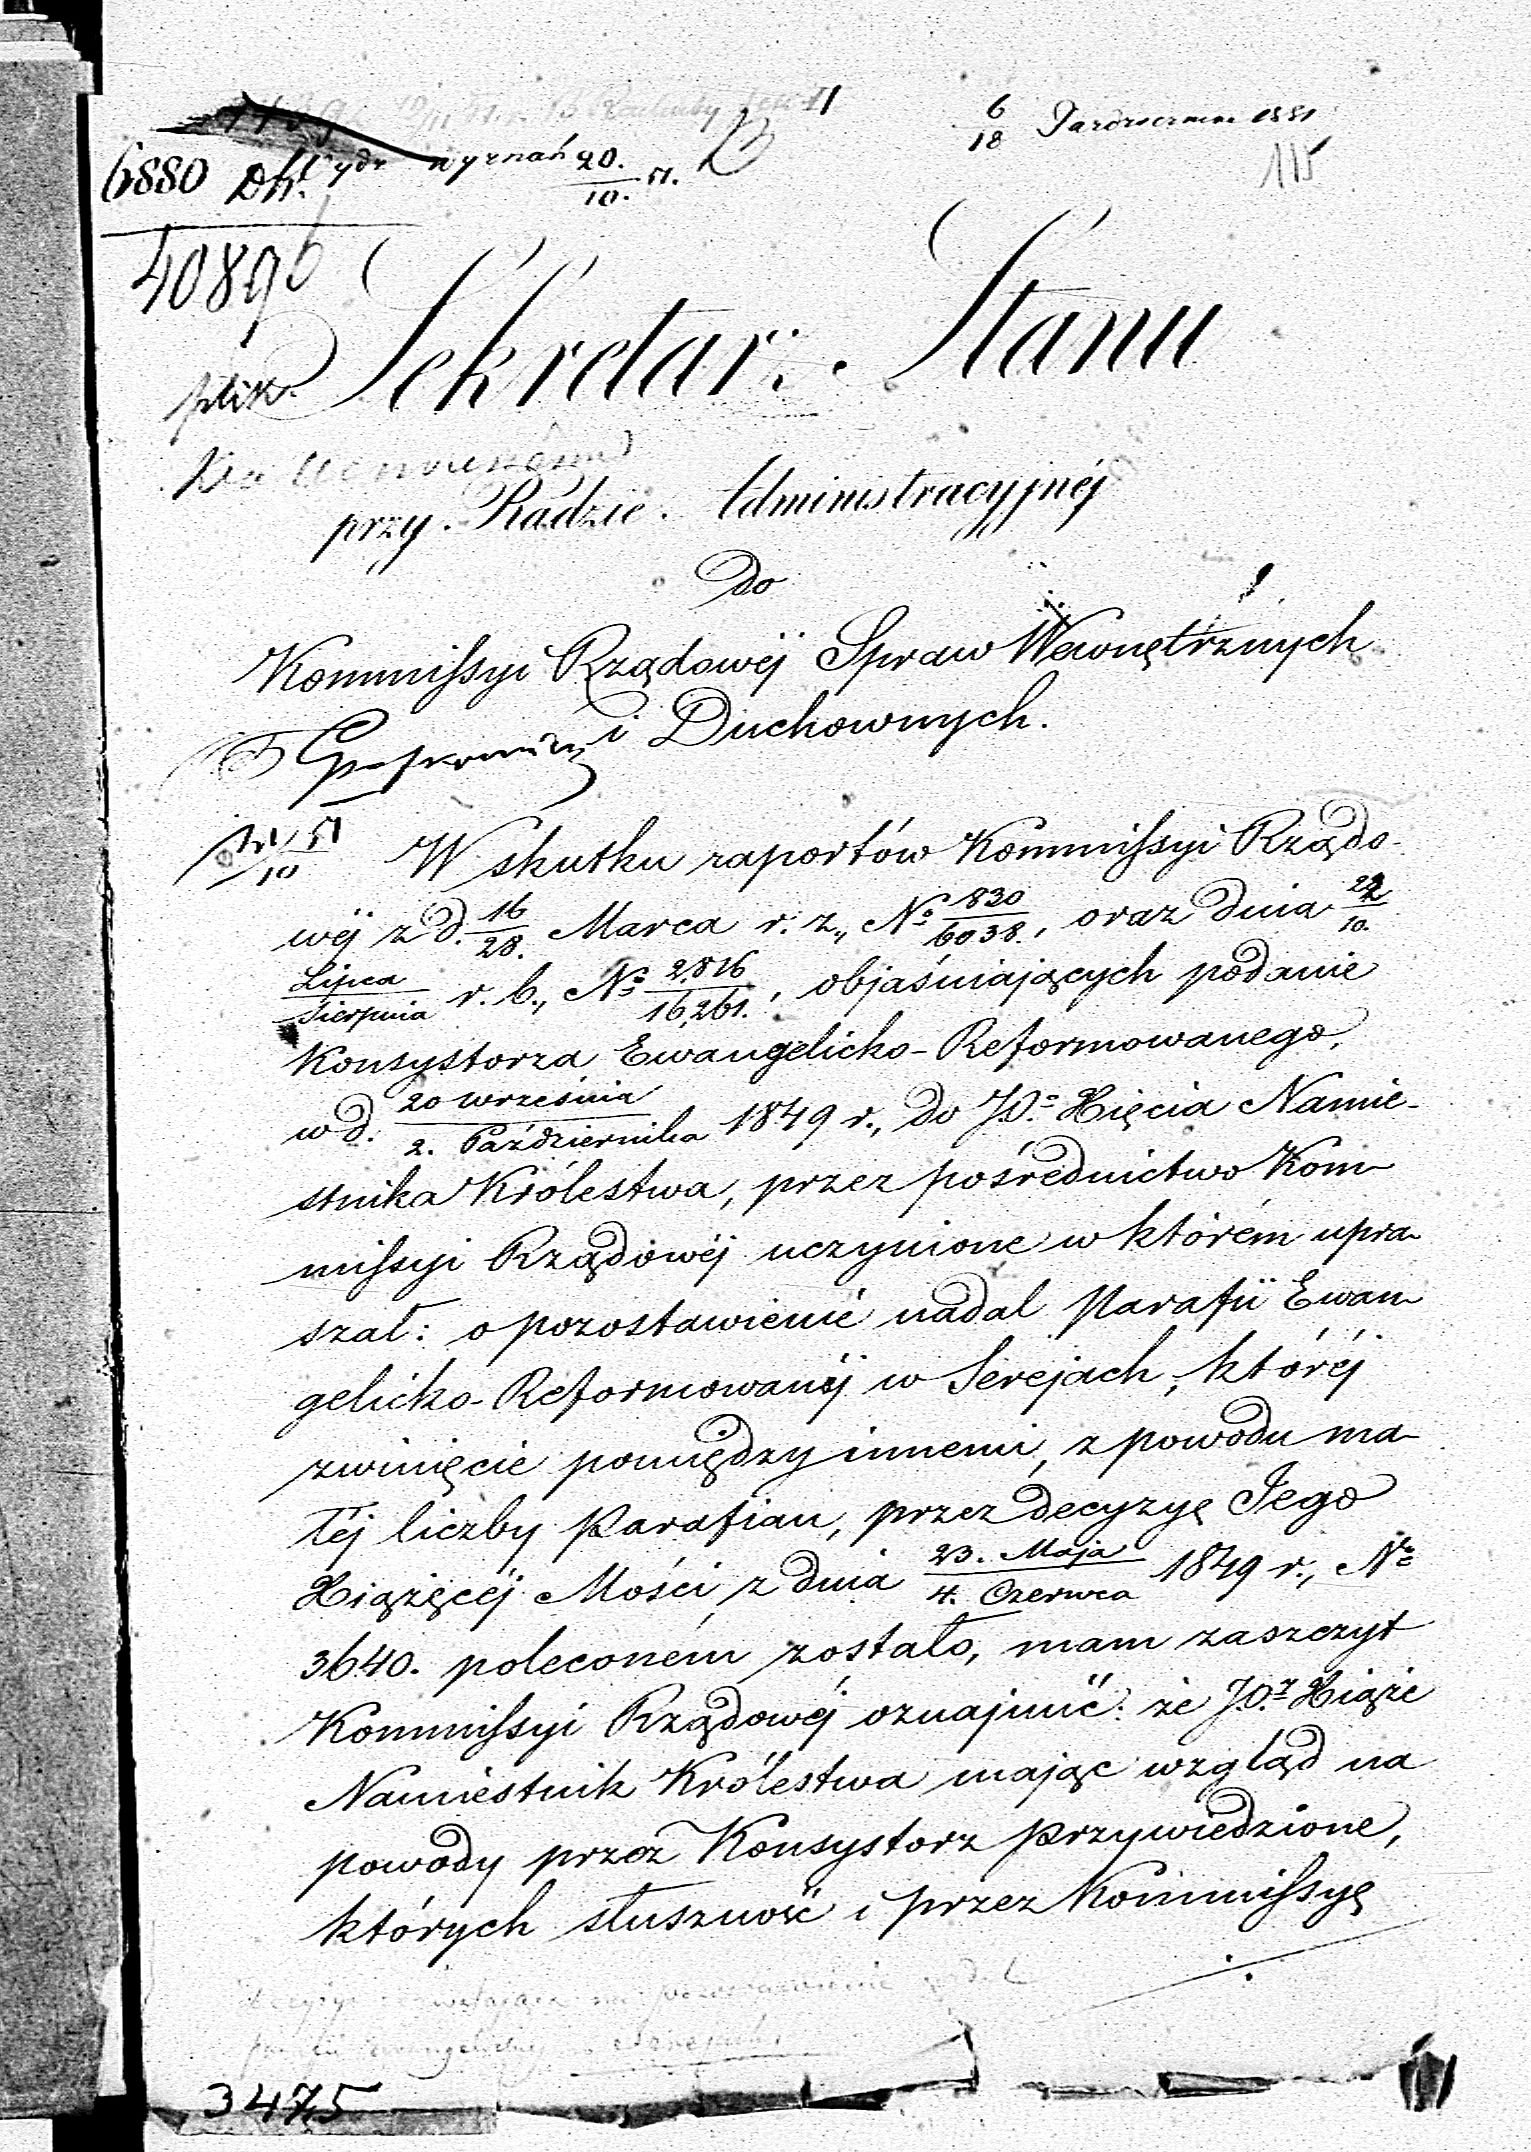 6/18 Października 1851
115
6880 Dh. wydz wyznań 20./10. 51.
40896
plik.
Sekretarz Stanu
przy Radzie Administracyjnéj
do
Kommissyi Rządowéj Spraw Wewnętrznych
i Duchownych.
21/10 51
W skutku raportów Kommissyi Rządo-
wéj z d. 16/28. Marca r. z., No 830/6038., oraz dnia 22/10.
Lipca/Sierpnia r. b., No 2816/16,261., objaśniających podanie
Konsystorza Ewangelicko-Reformowanego,
w d. 20 września/2. Października 1849 r., do JO. Xięcia Namie-
stnika Królestwa, przez pośrednictwo Kom-
missyi Rządowéj uczynione w którém upra-
szał: o pozostawienie nadal Parafii Ewan-
gelicko-Reformowanéj w Serejach, któréj
zwinięcie pomiędzy innemi, z powodu ma-
łéj liczby Parafian, przez decyzyę Jego
Xiążęcéj Mości z dnia 23. Maja/4. Czerwca 1849 r., No
3640. poleconém zostało, mam zaszczyt
Kommissyi Rządowéj oznajmić: że JO. Xiąże
Namiestnik Królestwa mając wzgląd na
powody przez Konsystorz przywiedzione,
których słuszność i przez Kommissyę
3475